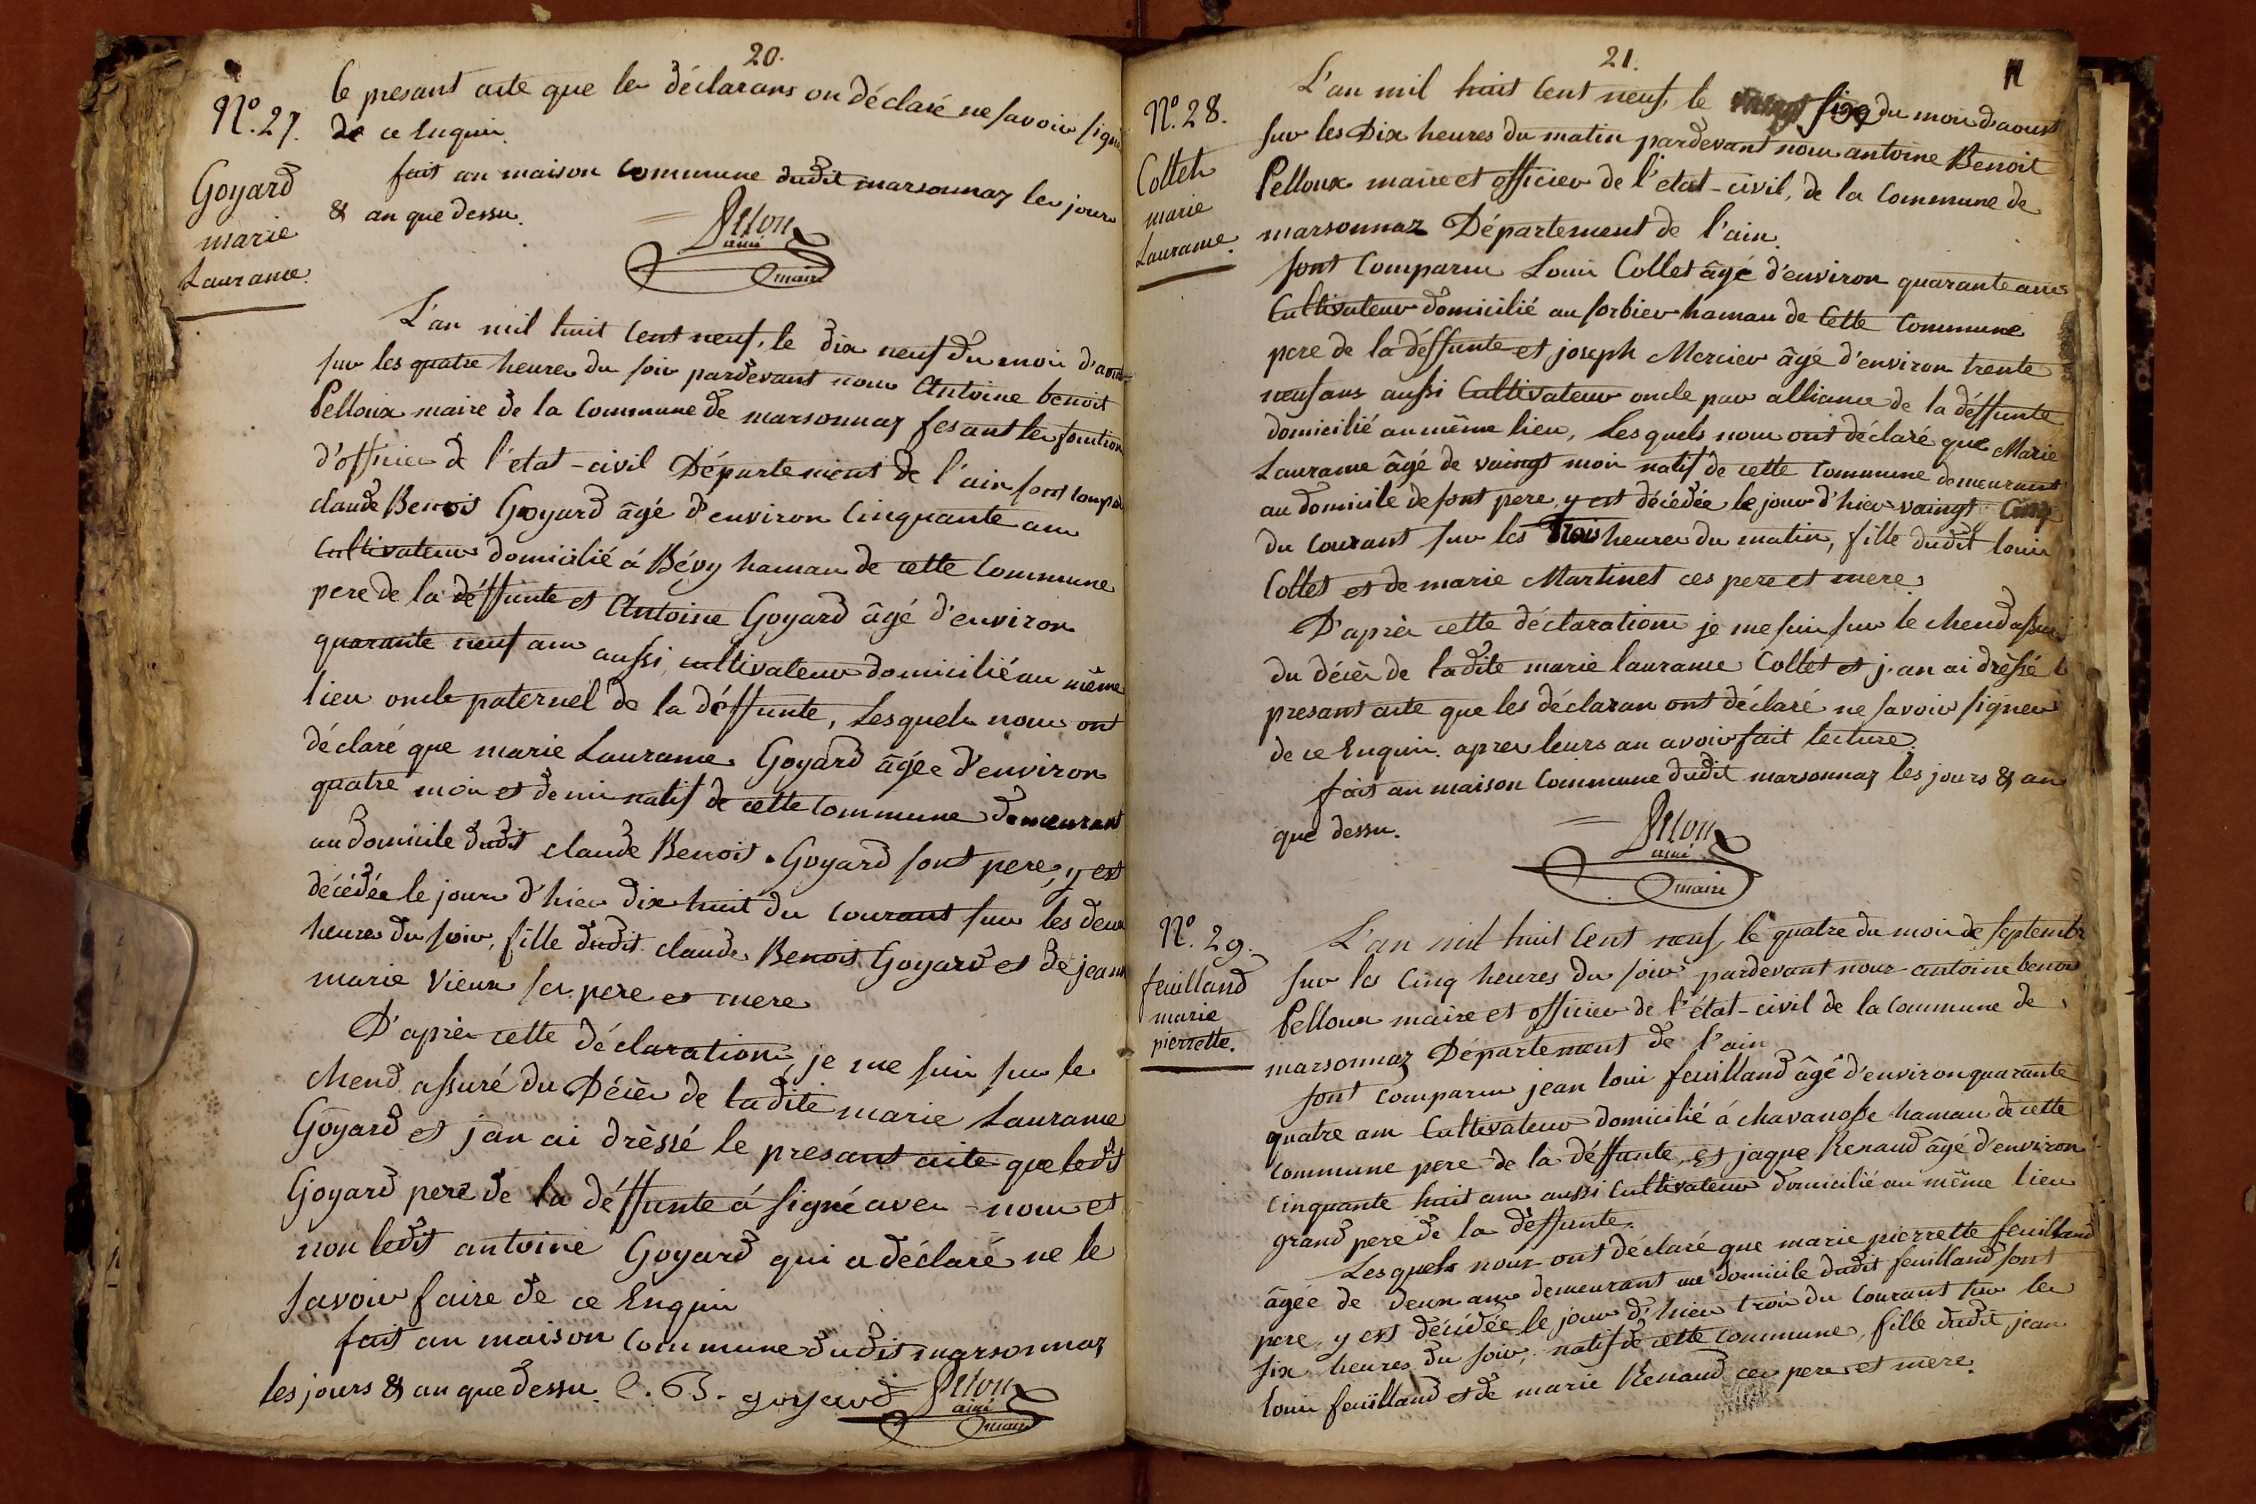 20.
le presant acte que les déclarans on déclaré ne savoir signé
de ce Enquis.
fait an maison commune dudit marsonnaz les jours
& an que dessu.
aîné
maire
N.º 27.
Goyard
marie
Laurance.
L'an mil huit cent neuf, le dix neuf du mois d'aoust
sur les quatre heures du soir pardevant nous Antoine benoit
Pelloux maire de la commune de marsonnaz fesant les fonction
d'officier de l'etat-civil Département de l'ain sont comparu
claude Benoit Goyard âgé d'environ Cinquante ans
Cultivateur domicilié á Bévy hamau de cette Commune
pere de la déffunte et Antoine Goyard âgé d'environ
quarante neuf ans aussi cultivateur domicilié au même
lieu oncle paternel de la déffunte, Lesquels nous ont
déclaré que marie Laurance Goyard âgée d'environ
quatre mois et demi natif de cette Commune demeurant
au domicile dudit claude Benoit Goyard sont pere, y est
décédée le jour d'hier dix huit du courant sur les deux
heures du soir, fille dudit claude Benoit Goyard et de jeanne
marie Vieux ses pere et mere
D'après cette déclaration, je me suis sur le
chend assuré du Décès de ladite marie Laurance
Goyard et j'an ai dréssé le presant acte que ledit
Goyard pere de la déffunte á signé avec nous et
non ledit antoine Goyard qui a déclaré ne le
savoir faire de ce Enquis
fait an maison Commune dudit marsonnaz
les jours & an que dessu. C. B. goyard
aîné
maire
21.
N.º 28.
Collet
marie
Laurance.
L'an mil huit Cent neuf, le vaingt six du mois d'aoust
sur les Dix heures du matin pardevant nous antoine Benoit
Pelloux maire et officier de l'etat-civil, de la Commune de
marsonnaz Département de l'ain.
sont Comparu Louis Collet âgé d'environ quarante ans
Cultivateur domicilié au sorbier hamau de Cette Commune
pere de la déffunte et joseph Mercier âgé d'environ trente
neuf ans aussi Cultivateur oncle par alliance de la déffunte
domicilié au même lieu, Lesquels nous ont déclaré que Marie
Laurance âgé de vaingt mois natif de cette Commune demeurant
au domicile de sont pere, y est décédée le jour d'hier vaingt Cinq
du Courant sur les trois heures du matin, fille dudit louis
Collet et de marie Martinet ces pere et mere.
D'après cette déclaration je me suis sur le chend assuré
du décès de ladite marie laurance Collet et j'an ai dréssé l
presant acte que les déclaran ont déclaré ne savoir signer
de ce Enquis. apres leurs an avoir fait lecture.
fait an maison Commune dudit marsonnaz les jours & an
que dessu.
aîné
maire
N.º 29.
feuilland
marie
pierrette.
L'an mil huit Cent neuf, le quatre du mois de septembr
sur les Cinq heures du soir pardevant nous antoine benoit
Pelloux maire et officier de l'état-civil de la Commune de
marsonnaz Département de l'ain
sont Comparu jean loui feuilland âgé d'environ quarante
quatre ans Cultivateur domicilié á chavanosse hamau de cette
Commune pere de la déffunte, et jaque Renaud âgé d'environ
Cinquante huit ans aussi Cultivateur domicilié au même lieu
grand pere de la déffunte.
Lesquels nous ont déclaré que marie pierrette feuilland
âgée de deux ans demeurant au domicile dudit feuilland sont
pere, y est décédée le jour d'hier trois du Courant sur les
six heures du soir, natif de cette Commune, fille dudit jean
louis feuilland et de marie Renaud ces pere et mere.